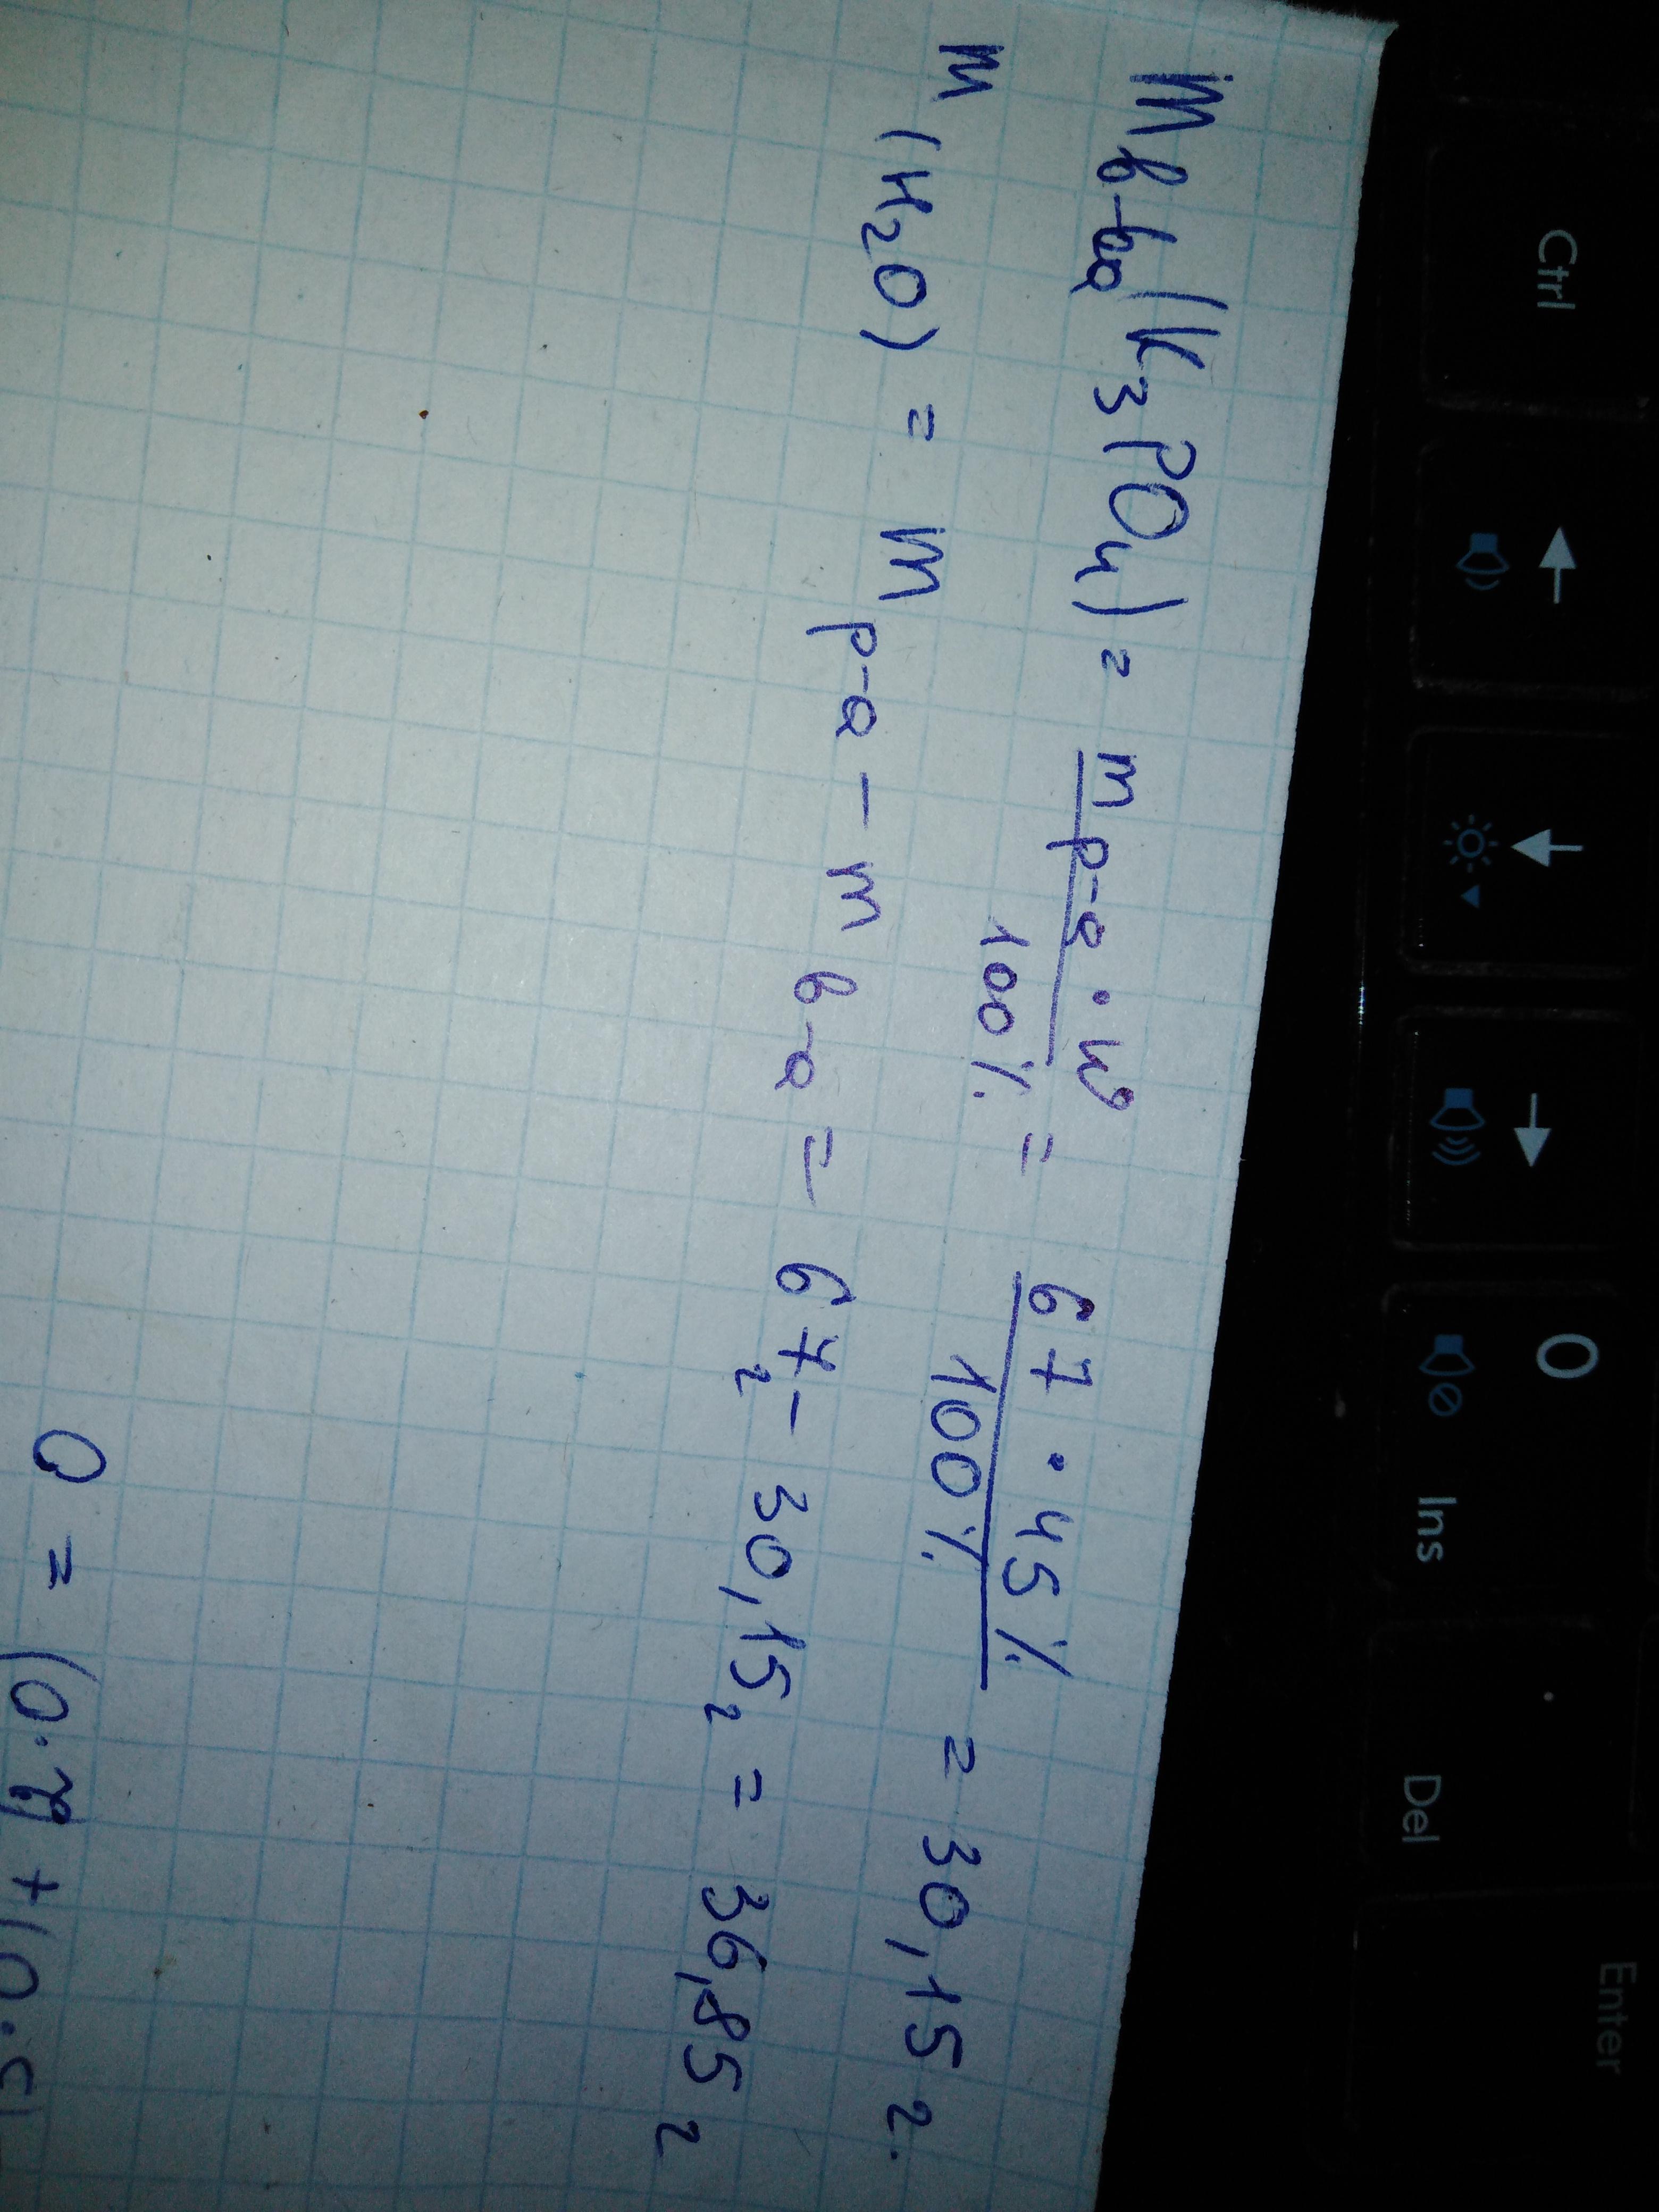 m в-ва(K₃PO₄) = m р-а · w / 100% = 67 · 45% / 100% = 30,15 г.
m (H₂O) = m р-а − m в-а = 67г − 30,15г = 36,85 г
Ctrl
0 Ins
. Del
Enter